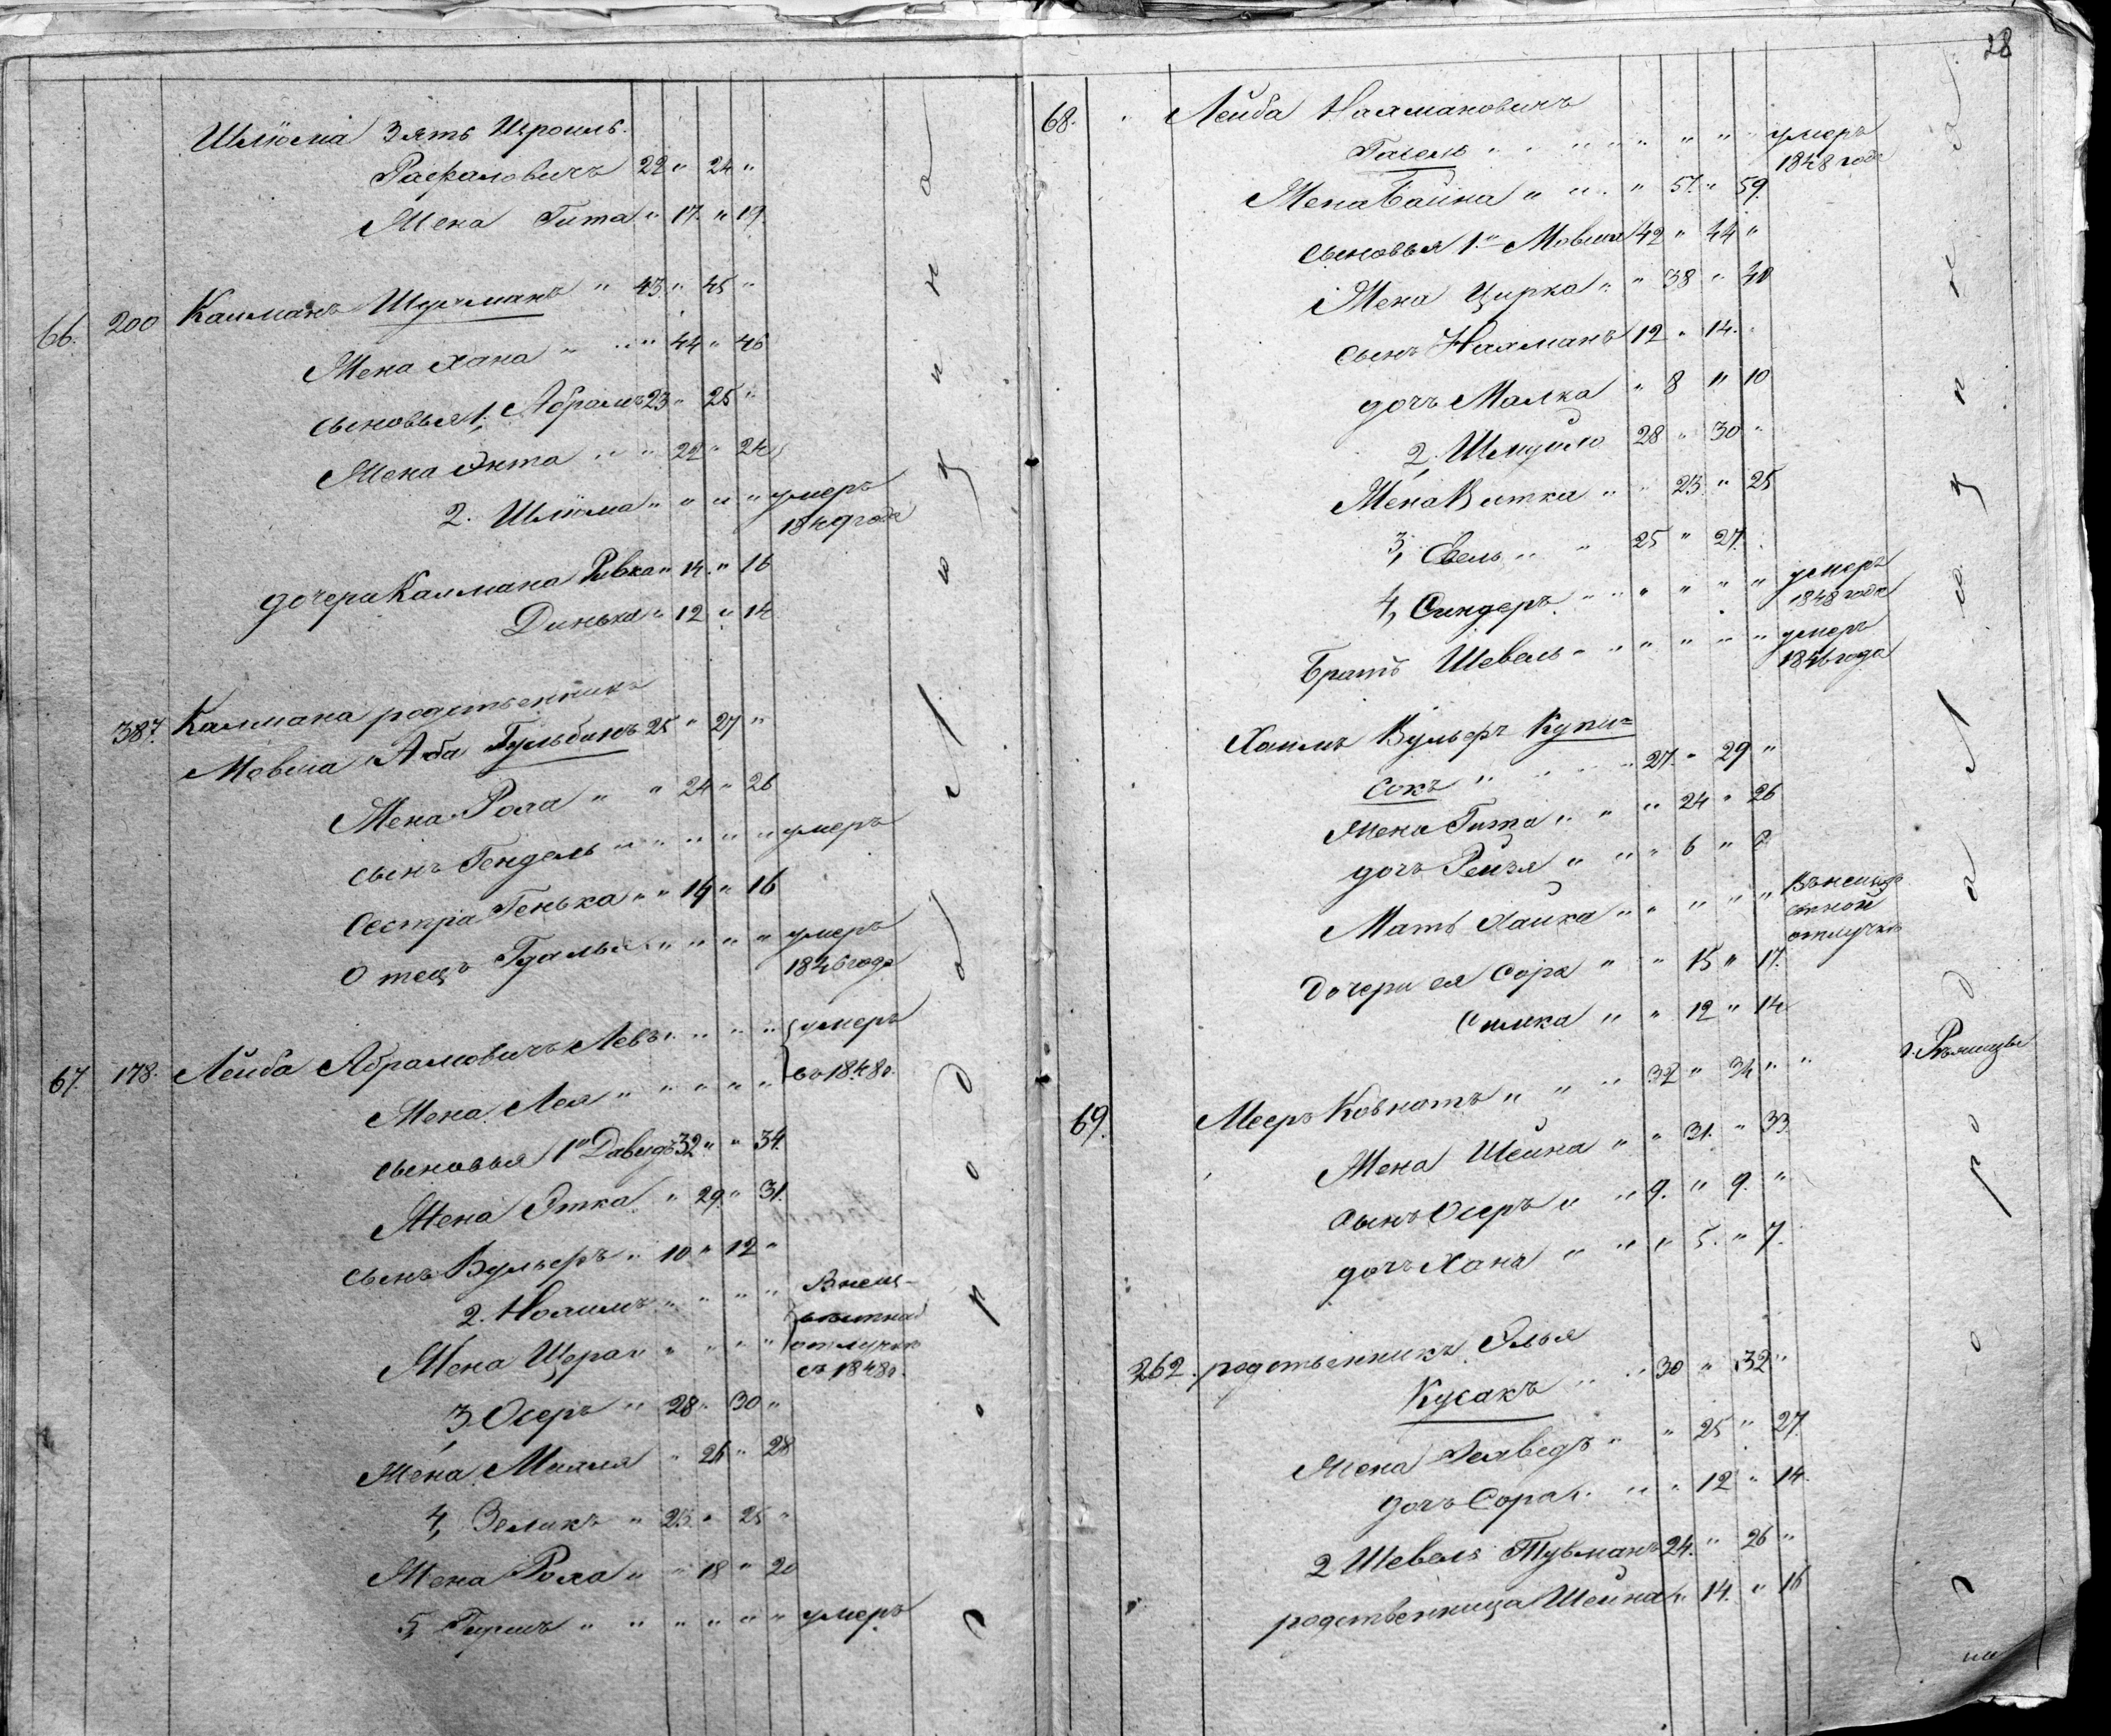 Шлiома Зять Изроиль
Рафаловичъ 22 " 24 "
Жена Гита " 17. " 19.
66. 200 Калманъ Шухманъ " 43 " 45 "
Жена Хана " " " 44 " 46
сыновья 1, Абрамъ 23 " 25 "
Жена Энта " " 22 " 24
2. Шлiома " " " " умеръ
1849 года
дочери Калмана Ривка " 14. " 16
Динька " 12 " 14
387. Калмана родственникъ
Мовша Аба Гульбинъ 25 " 27 "
Жена Роха " " 24 " 26
сынъ Гендель " " " " умеръ
Сестра Генька " " 14 " 16
Отецъ Гдалья " " " " умеръ
1846 года
67. 178. Лейба Абрамовичъ Левъ " " " умеръ
Жена Лея " " " " " въ 1848 г.
сыновья 1й Давидъ 32 " " 34.
Жена Этка " 29. " 31.
сынъ Вульфъ " 10 " 12 "
2. Нохимъ " " " " В неиз-
вѣстной
Жена Шера " " " " отлучкѣ
съ 1848 г.
3, Осеръ " 28 " 30 "
Жена Михля " 26 " 28
4, Зеликъ " 23 " 25 "
Жена Роха " " 18 " 20
5, Гиршъ " " " " " " умеръ
28
68. Лейба Нахмановичъ
" " " " " " умеръ
1848 года
Жена Бейна " " " 57. " 59.
сыновья 1й Мовша 42 " 44 "
Жена Цирка " " 38 " 40
сынъ Нахманъ 12 " 14.
дочь Малка " 8 " 10
2, 28 " 30 "
Жена Витка " " 23. " 25
3, " " 25 " 27.
4, Синдеръ " " " " " умеръ
1848 года
Братъ Шевель " " " " " умеръ
1846 года
Хаимъ Вульфъ Купи=
сокъ " " " " 27. " 29 "
Жена Гита " " " 24 " 26
дочь Рейзя " " " 6 " 8
Мать Хайка " " " " " Въ неизвѣ
стной
отлучкѣ
Дочери ея Сора " " 15 " 17.
Симка " " 12 " 14
69. Мееръ Ковнатъ " " " 32 " 34 " " г. Рѣжицы
Жена Шейна " " 31. " 33.
сынъ Осеръ " " 9. " 9. "
дочь Хана " " " 5. " 7.
262. родственникъ Элья
Кусакъ " " 30 " 32 "
Жена " " 25 " 27.
дочь Сора " " " 12 " 14.
2 Шевель Тувманъ 24. " 26 "
родственница Шейна " 14. " 16